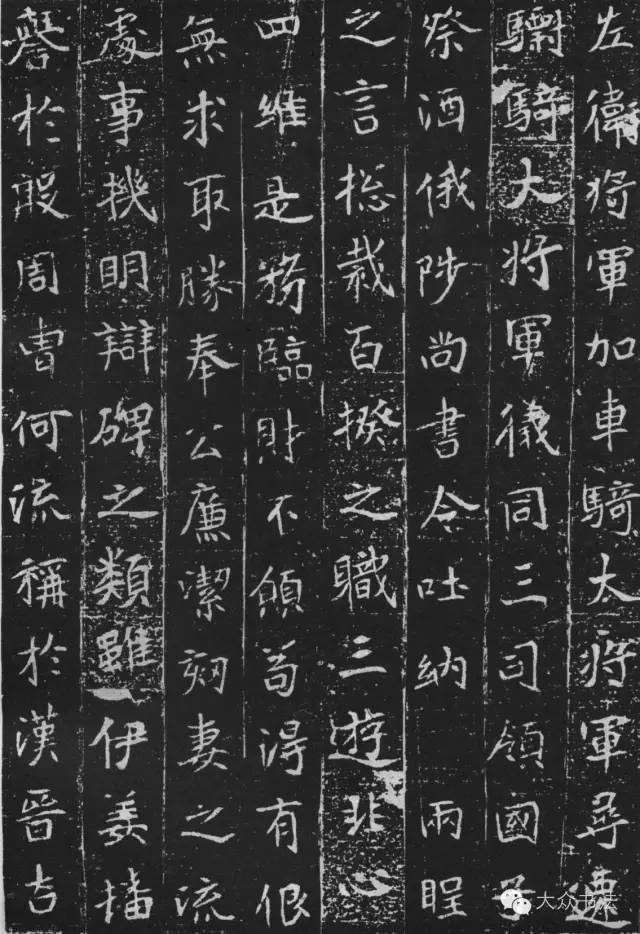 左衛将軍加車騎大將軍尋遷
驃騎大將軍儀同三司領國子
祭酒俄陟尚書令吐納 兩聖
之言揔裁百揆之職三遊非心
四維是務臨財不傾苟得有恨
無求取勝奉公廉潔剋妻之流
處事機明辯碑之類雖伊姜播
譽於殷周曺何流稱於漢晉古
大众书法